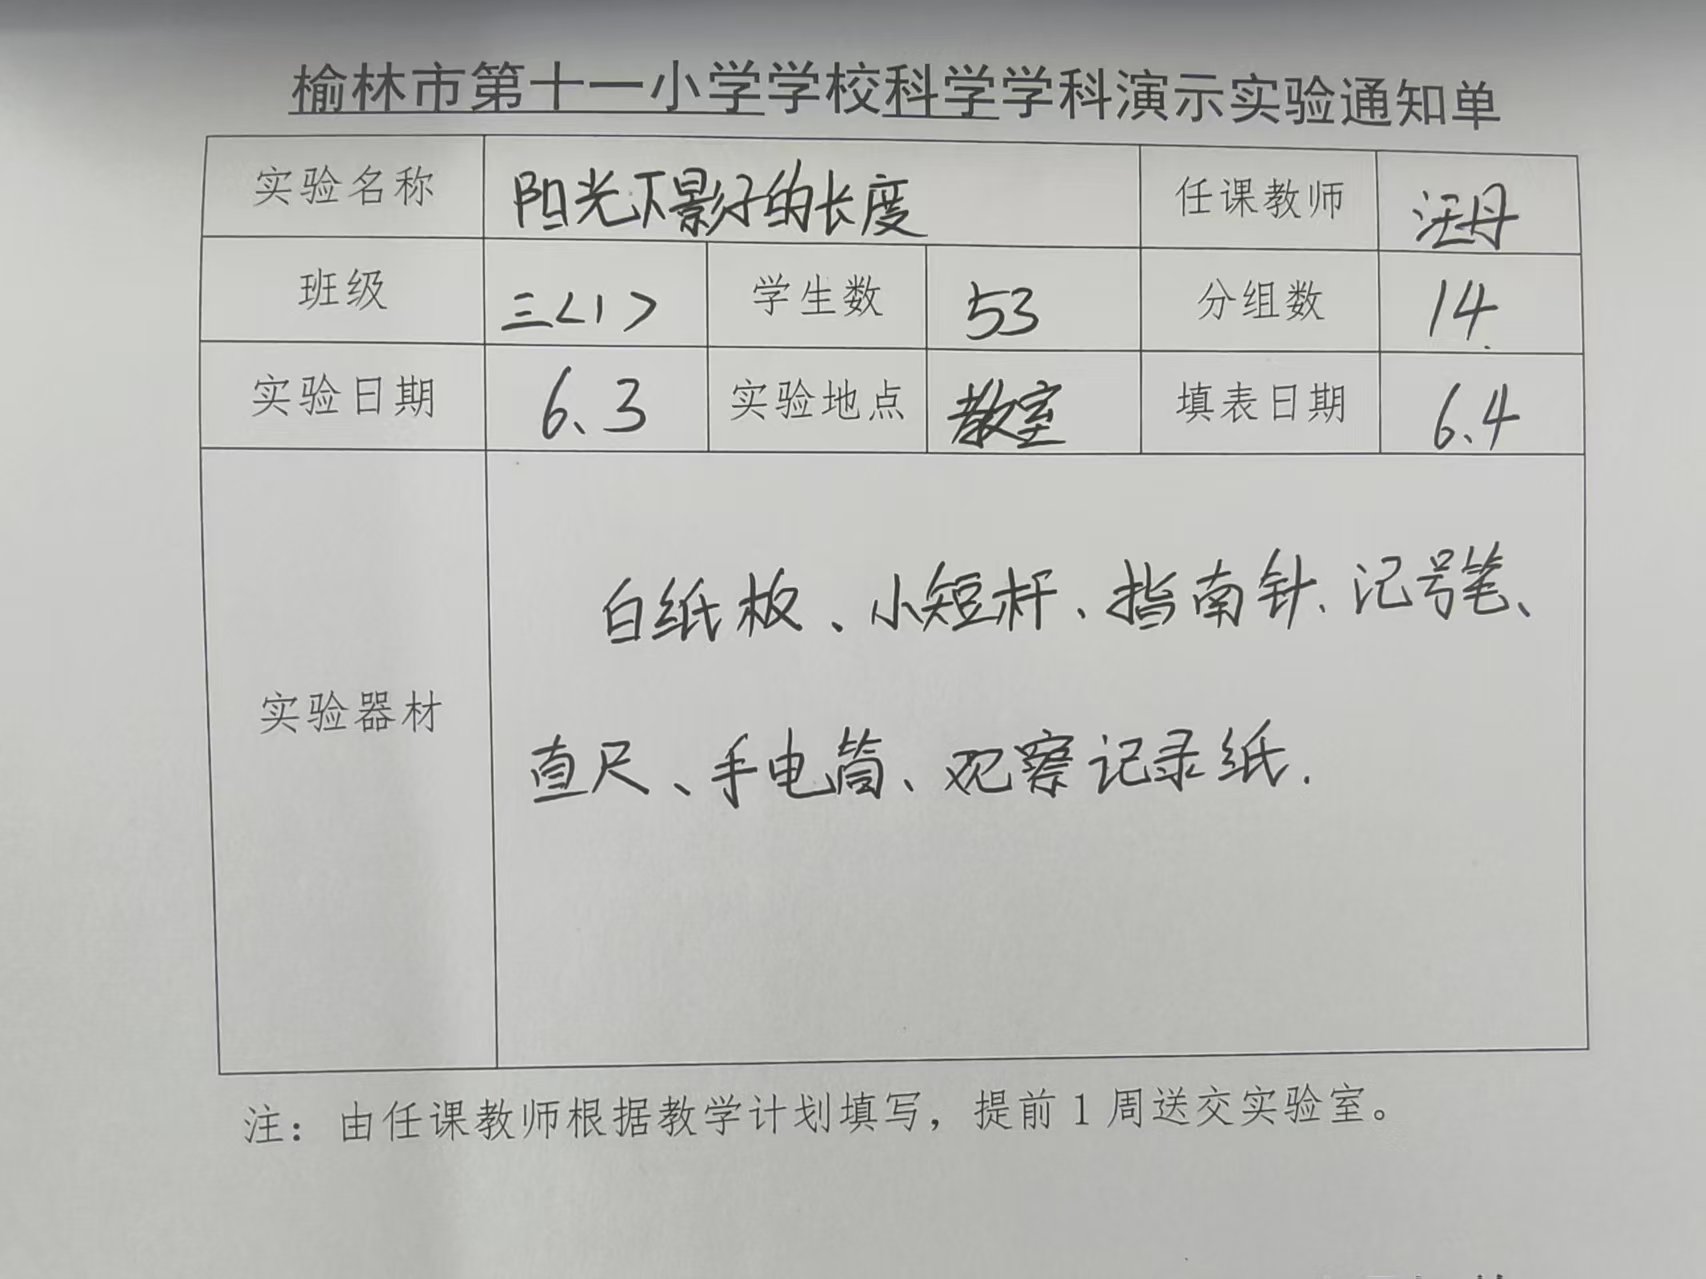 榆林市第十一小学学校科学学科演示实验通知单
实验名称 阳光下影子的长度 任课教师 汪丹
班级 三<1> 学生数 53 分组数 14
实验日期 6、3 实验地点 教室 填表日期 6.4
白纸板、小短杆、指南针、记号笔、
实验器材
直尺、手电筒、观察记录纸.
注：由任课教师根据教学计划填写，提前1周送交实验室。